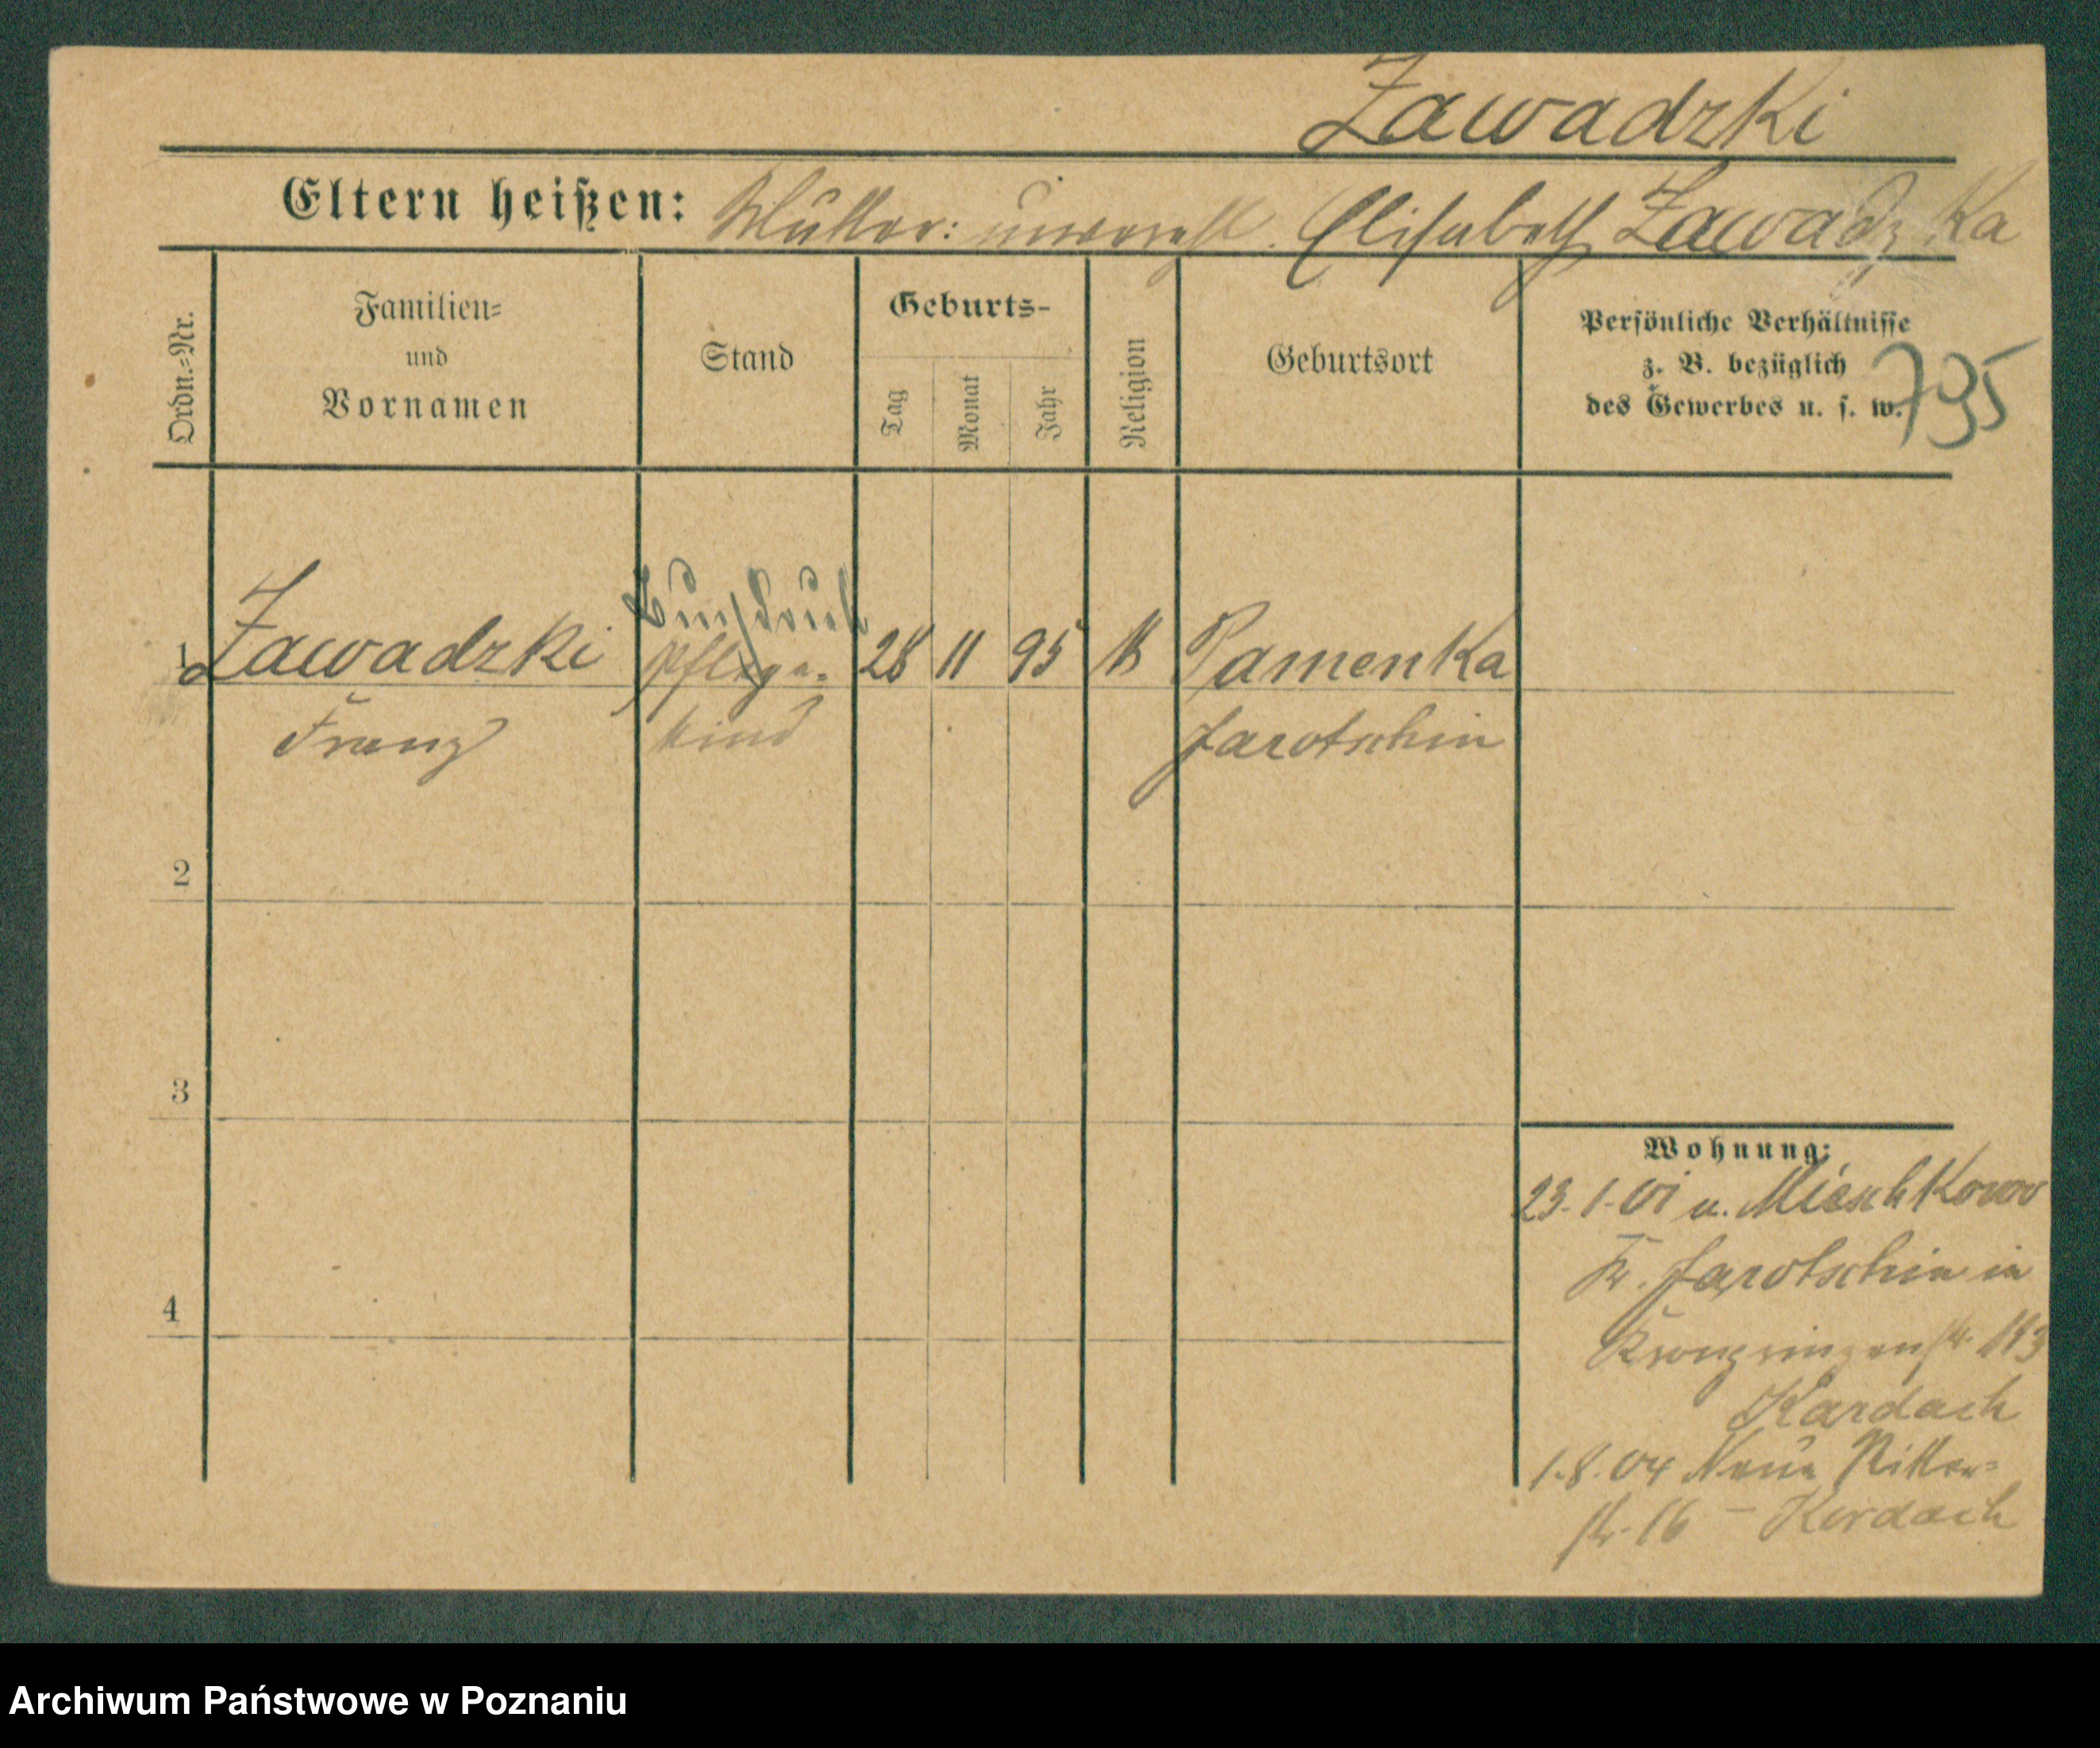 Zawadzki
Eltern heißen: Mutter: unverehl. Elisabeth Zawadzka
Ordn.=Nr.
Familien=
und
Vornamen
Stand
Geburts-
Tag
Monat
Jahr
Religion
Geburtsort
Persönliche Verhältnisse
z. B. bezüglich
des Gewerbes u. s. w.
795
1 Zawadzki Pflege- 28 11 95 K Pamenka
Franz kind Jarotschin
2
3
4
Wohnung:
23.1.01 u. Mieschkow
Kr. Jarotschin in
Kronprinzenstr. 113
Kardach
1.8.04 Neue Ritter=
str. 16 – Kordach
Archiwum Państwowe w Poznaniu